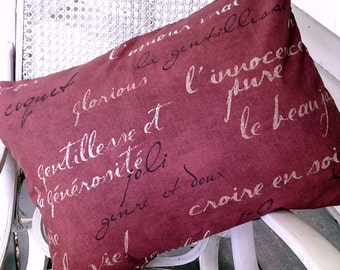 l'amour vrai
la gentillesse
coquet
glorious
l'innocence
pure
le beau
gentillesse et
la générosité
joli
genre et doux
croire en soi